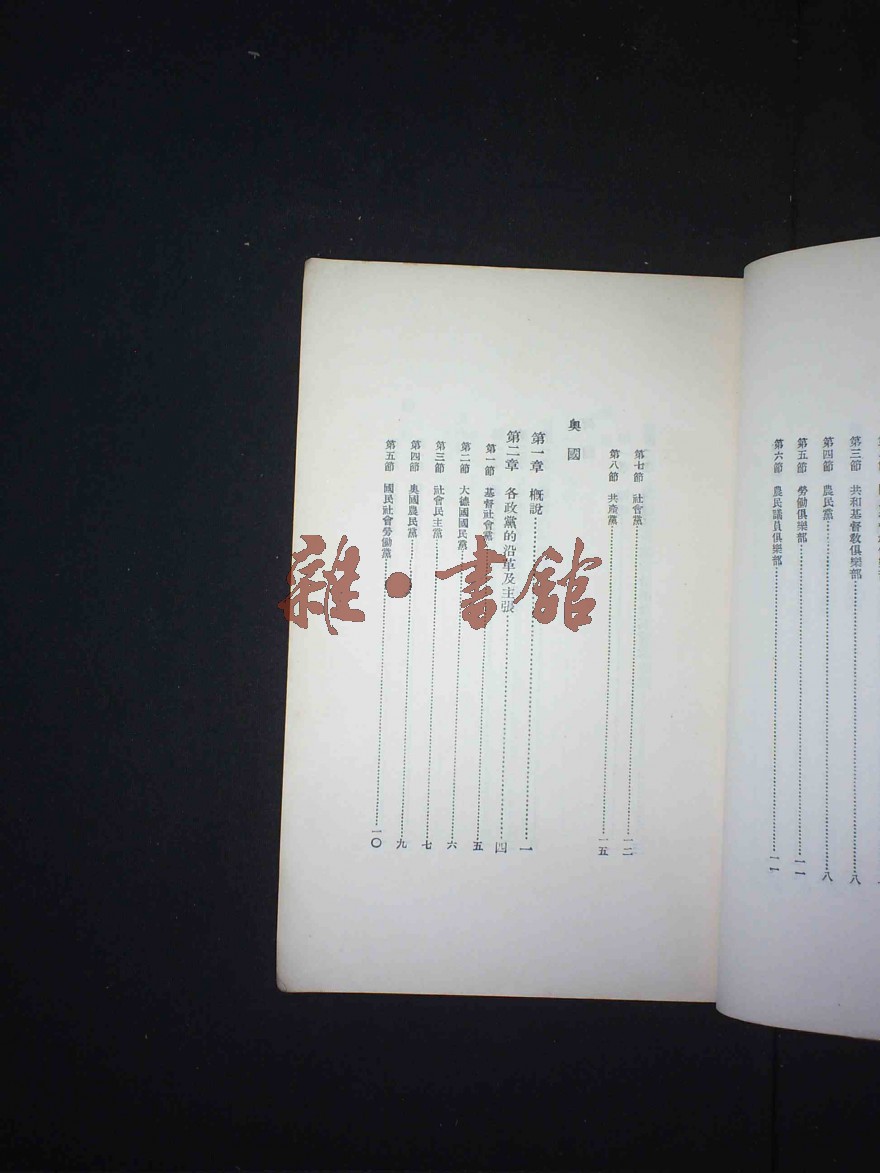 第三節　共和基督教俱樂部………八
第四節　農民黨………八
第五節　勞働俱樂部………一一
第六節　農民議員俱樂部………一一
第七節　社會黨………一二
第八節　共產黨………一五
奧國
第一章　概說………一
第二章　各政黨的沿革及主張………四
第一節　基督社會黨………五
第二節　大德國國民黨………六
第三節　社會民主黨………七
第四節　奧國農民黨………九
第五節　國民社會勞働黨………一〇
雜·書館